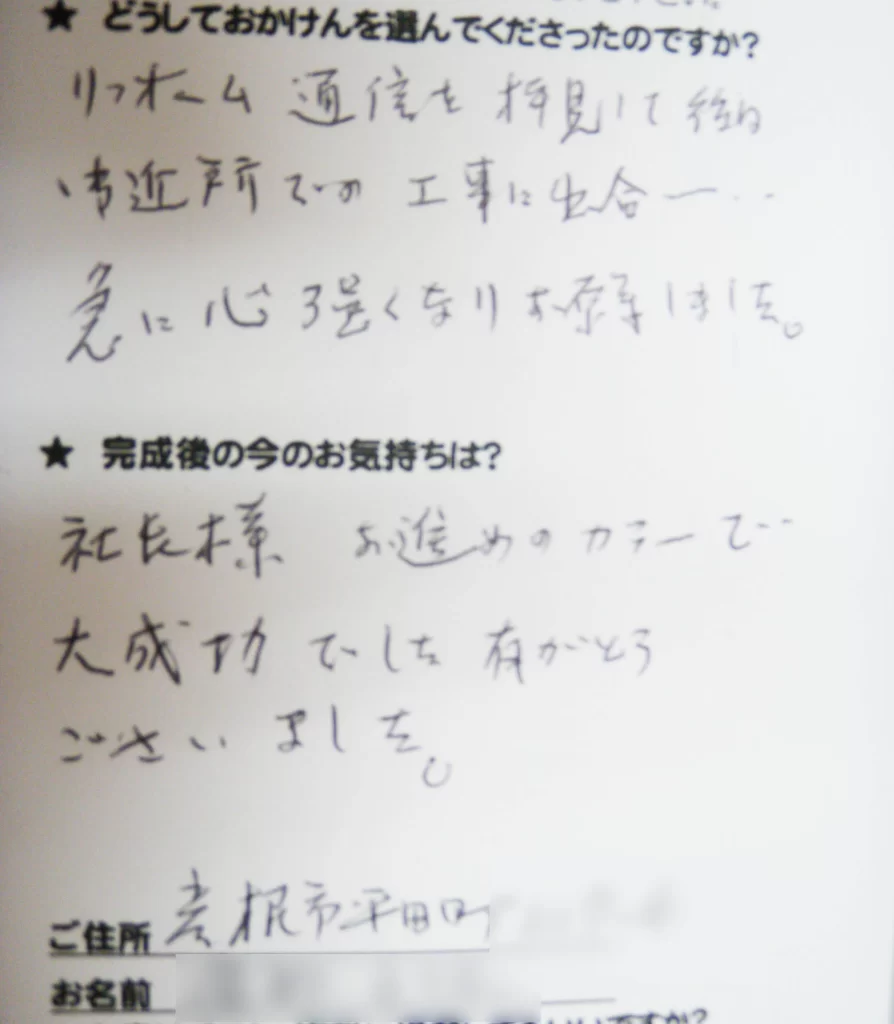 ★ どうしておかけんを選んでくださったのですか?
リフォーム 通信を 拝見して 後日
御近所での 工事に出合一‥
急に 心強くなり お願いしました。
★ 完成後の今のお気持ちは?
社長様 お進めの カラーで‥
大成功 でした 有がとう
ございました。
ご住所 彦根市平田町
お名前
ですか?